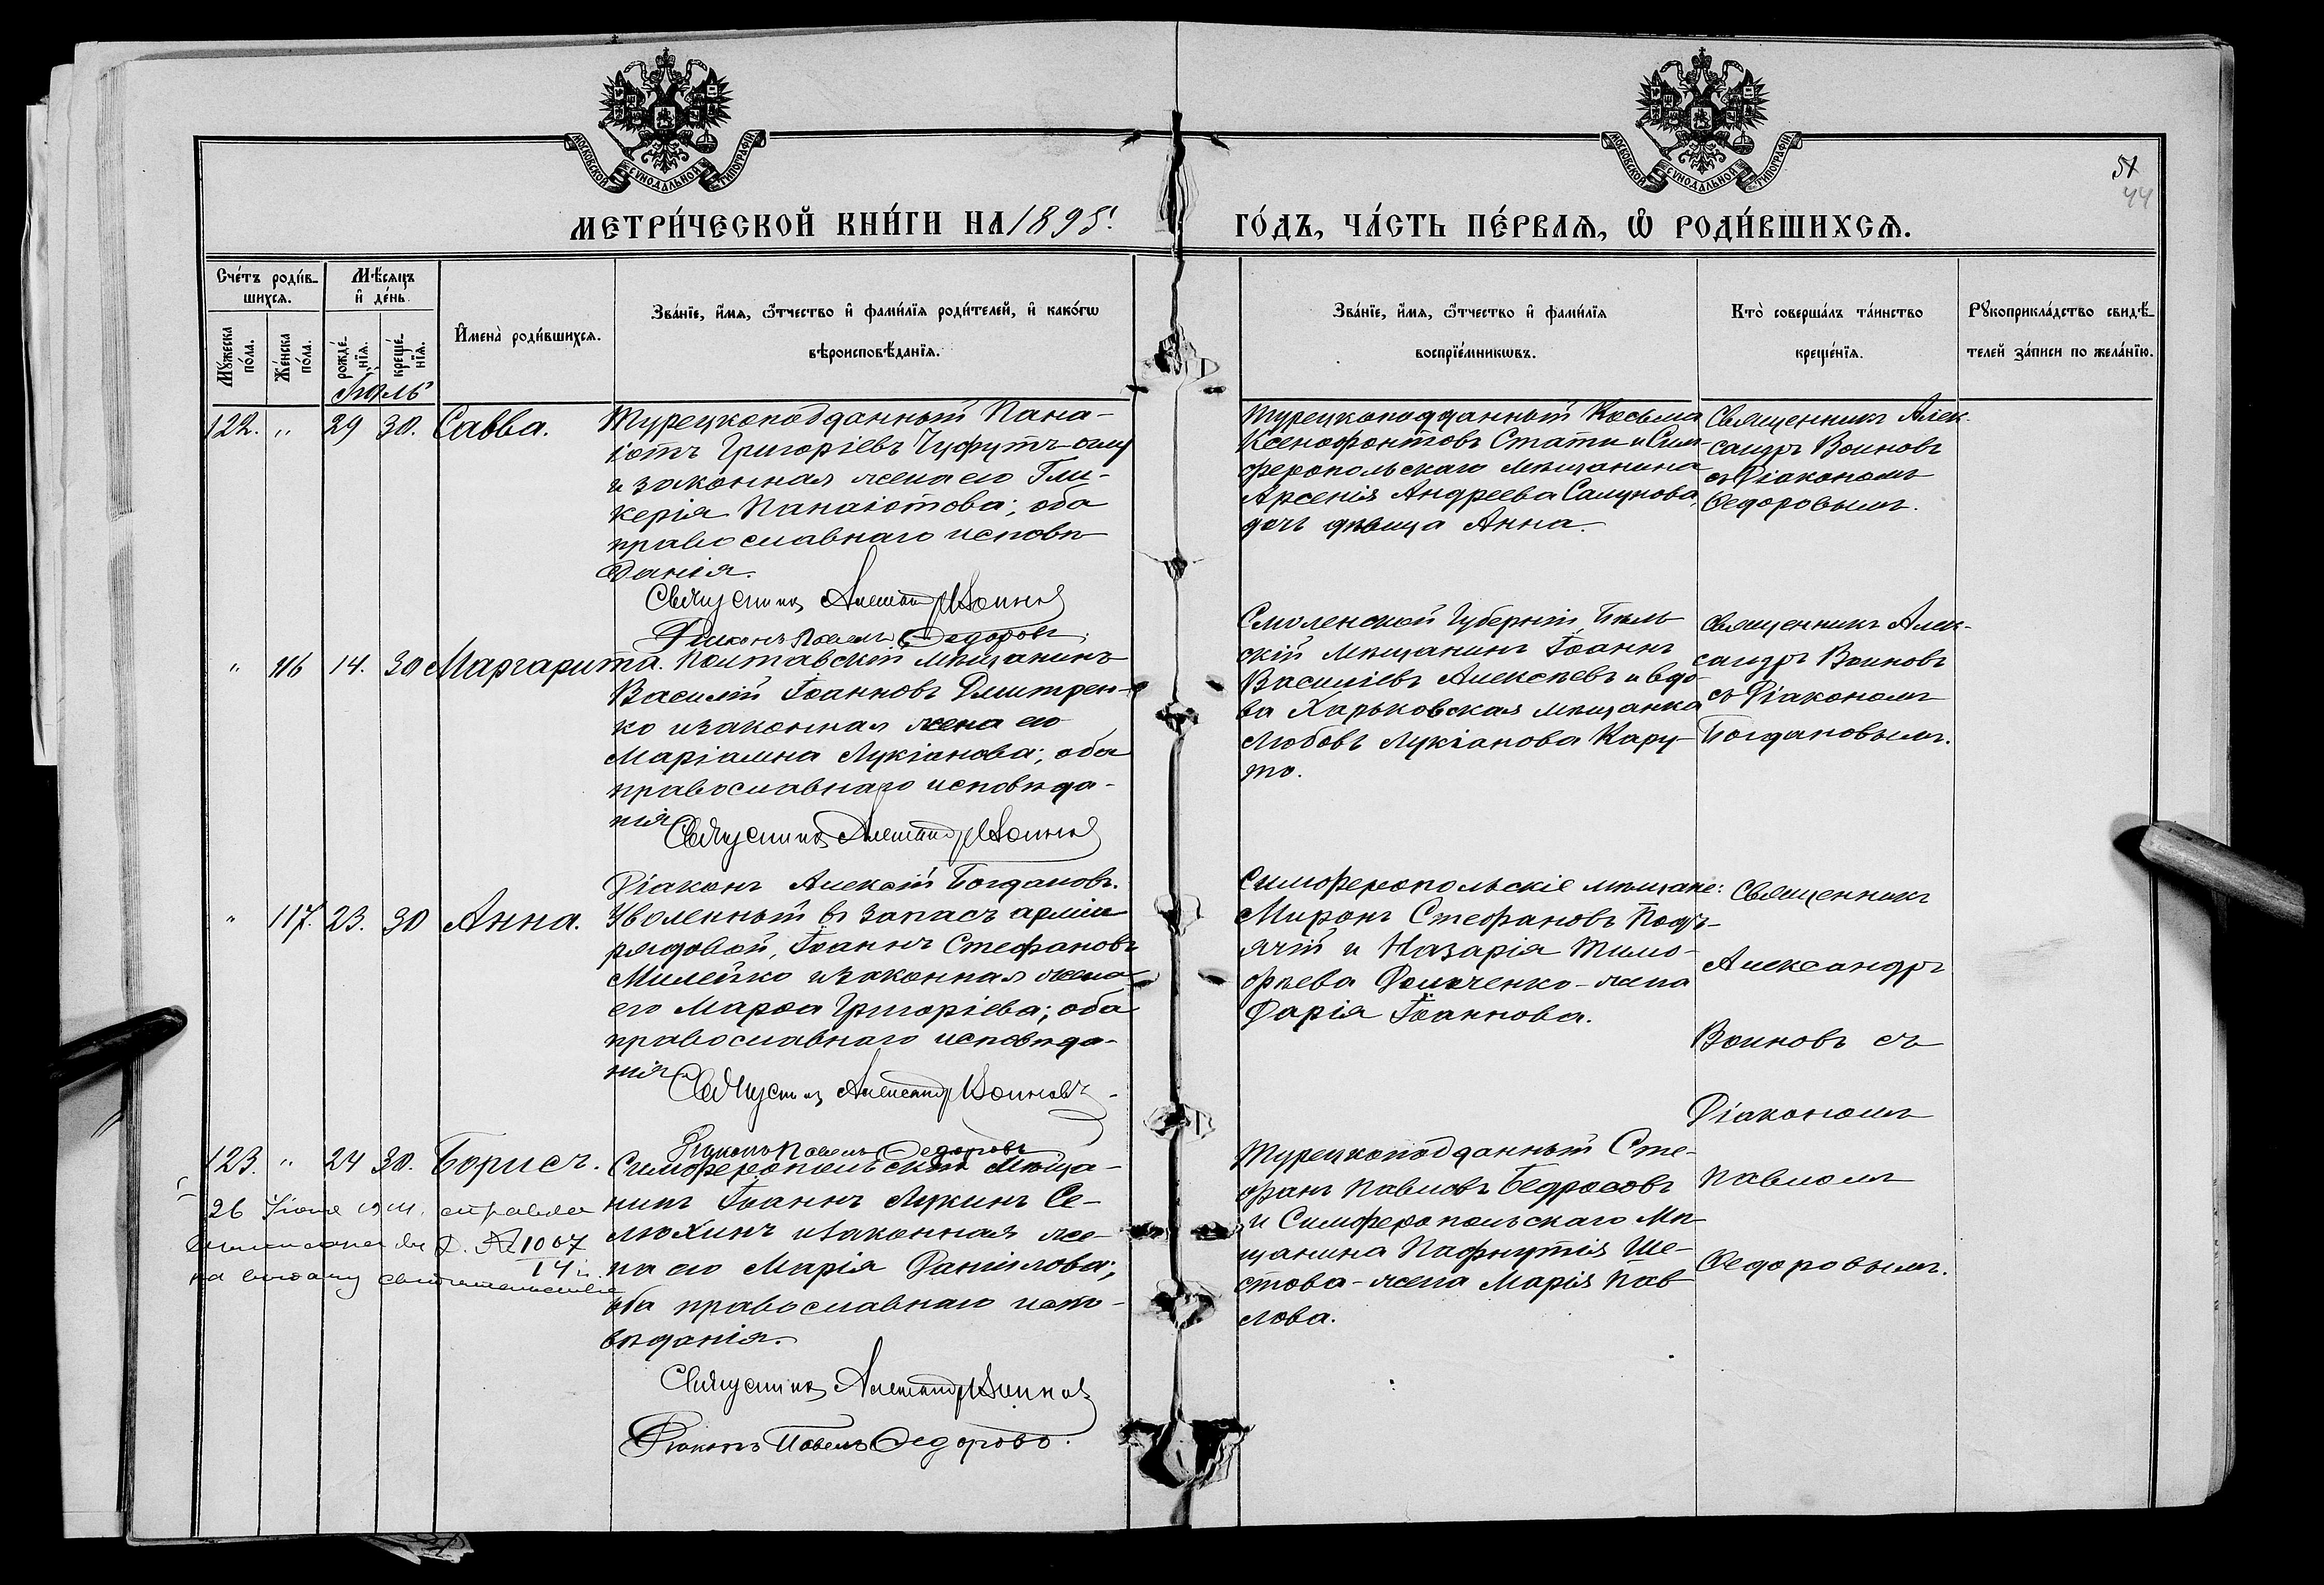 МОСКОВСКОЙ СѴНОДАЛЬНОЙ ТИПОГРАФІИ
МОСКОВСКОЙ СѴНОДАЛЬНОЙ ТИПОГРАФІИ
51
44
МЕТРИ́ЧЕСКОЙ КНИ́ГИ НА 1895.
ГО́ДЪ, ЧА́СТЬ ПЕ́РВАѦ, Ѡ҆ РОДИ́ВШИХСѦ.
Сче́тъ роди́в-
шихсѧ.
Мѣ́сѧцъ
и҆ де́нь
Мꙋ́жеска по́ла.
Же́нска по́ла.
рожде́-
нїѧ.
креще́-
нїѧ.
И҆мена̀ роди́вшихсѧ.
Зва́нїе, и҆́мѧ, ѻ҆́тчество и҆ фами́лїѧ роди́телей, и҆ како́гѡ
вѣроисповѣ́данїѧ.
Зва́нїе, и҆́мѧ, ѻ҆́тчество и҆ фами́лїѧ
воспрїе́мникѡвъ.
Кто̀ соверша́лъ та́инство
креще́нїѧ.
Рꙋкоприкла́дство свидѣ́-
телей за́писи по жела́нїю.
Іюль
122. " 29 30. Савва.
Турецкоподданный Пана-
іотъ Григоріевъ Чуфутъ-оглу
и законная жена его Гли-
керія Панаіотова; оба
православнаго исповѣ-
данія.
Священникъ Александръ Воиновъ
Діаконъ Павелъ Ѳедоровъ.
Турецкоподданный Косьма
Ксенофонтовъ Стати и Сим-
феропольскаго мѣщанина
Арсенія Андреева Салунова,
дочь дѣвица Анна.
Священникъ Алек-
сандръ Воиновъ
съ Діакономъ
Ѳедоровымъ.
" 116 14. 30 Маргарита.
Полтавскій мѣщанинъ
Василій Іоанновъ Дмитрен-
ко и законная жена его
Маріамна Лукіанова; оба
православнаго исповѣда-
нія
Священникъ Александръ Воиновъ
Діаконъ Алексій Богдановъ.
Смоленской Губерніи Бѣль-
скій мѣщанинъ Іоаннъ
Василіевъ Алексѣевъ и вдо-
ва Харьковская мѣщанка
Любовь Лукіанова Кару-
то.
Священникъ Алек-
сандръ Воиновъ
съ Діакономъ
Богдановымъ.
" 117. 23. 30 Анна.
Уволенный въ запасъ арміи
рядовой, Іоаннъ Стефановъ
Милейко и законная жена
его Марѳа Григоріева; оба
православнаго исповѣда-
нія.
Священникъ Александръ Воиновъ
Діаконъ Павелъ Ѳедоровъ
Симферопольскіе мѣщане:
Миронъ Стефановъ Подъ-
ячій и Назарія Тимо-
ѳеева жена
Дарія Іоаннова.
Священникъ
Александръ
Воиновъ съ
Діакономъ
Павломъ
Ѳедоровымъ.
123. " 24 30. Борисъ.
Симферопольскій мѣща-
нинъ Іоаннъ Лукинъ Се-
люхинъ и законная же-
на его Марія Даніилова;
оба православнаго испо-
вѣданія.
Священникъ Александръ Воиновъ
Діаконъ Павелъ Ѳедоровъ.
Турецкоподданный Сте-
фанъ Павловъ Бедросовъ
и Симферопольскаго мѣ-
щанина Пафнутія Ше-
стова - жена Марія Пав-
лова.
26 Іюня 1914. справка
№ 1067
14 г.
на выдачу свидѣтельства